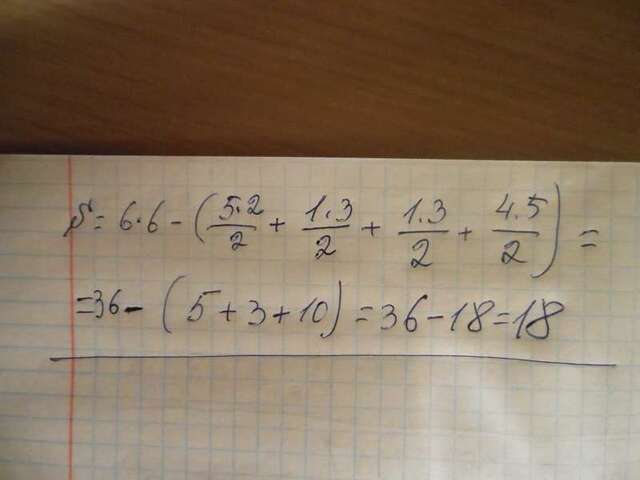 S = 6·6 - (5·2/2 + 1·3/2 + 1·3/2 + 4·5/2) =
= 36 - (5 + 3 + 10) = 36 - 18 = 18